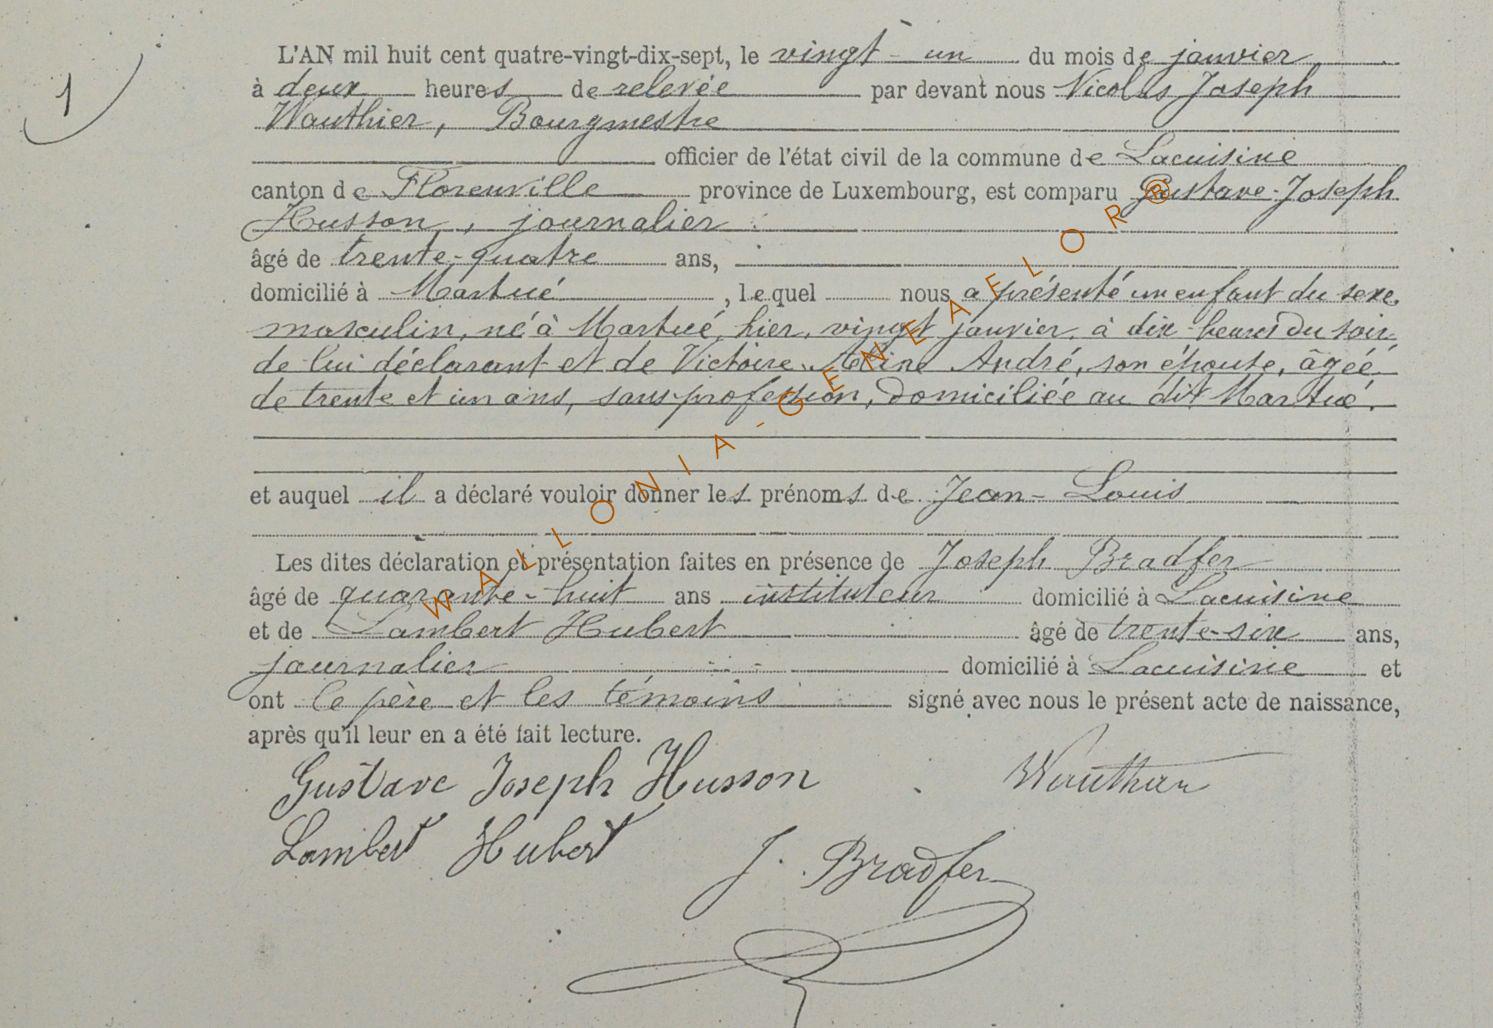 1
L'AN mil huit cent quatre-vingt-dix-sept, le vingt-un du mois de janvier
à deux heures de relevée par devant nous Nicolas Joseph
Wauthier, Bourgmestre
officier de l'état civil de la commune de Lacuisine
canton de Florenville province de Luxembourg, est comparu Gustave-Joseph
Husson, journalier
âgé de trente-quatre ans,
domicilié à Martué, lequel nous a présenté un enfant du sexe
masculin, né à Martué, hier, vingt janvier, à dix heures du soir
de lui déclarant et de Victoire André, son épouse, âgée
de trente et un ans, sans profession, domiciliée au dit Martué.
et auquel il a déclaré vouloir donner les prénoms de Jean-Louis
Les dites déclaration et présentation faites en présence de Joseph Bradfer
âgé de quarante-huit ans instituteur domicilié à Lacuisine
et de Lambert Hubert âgé de trente-six ans,
journalier domicilié à Lacuisine et
ont le père et les témoins signé avec nous le présent acte de naissance,
après qu'il leur en a été fait lecture.
Gustave Joseph Husson Wauthier
Lambert Hubert J. Bradfer
WALLONIA-GENEAFLOR®